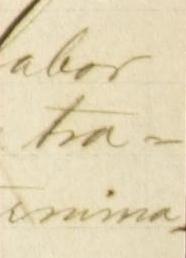 labor
tra-
tenima